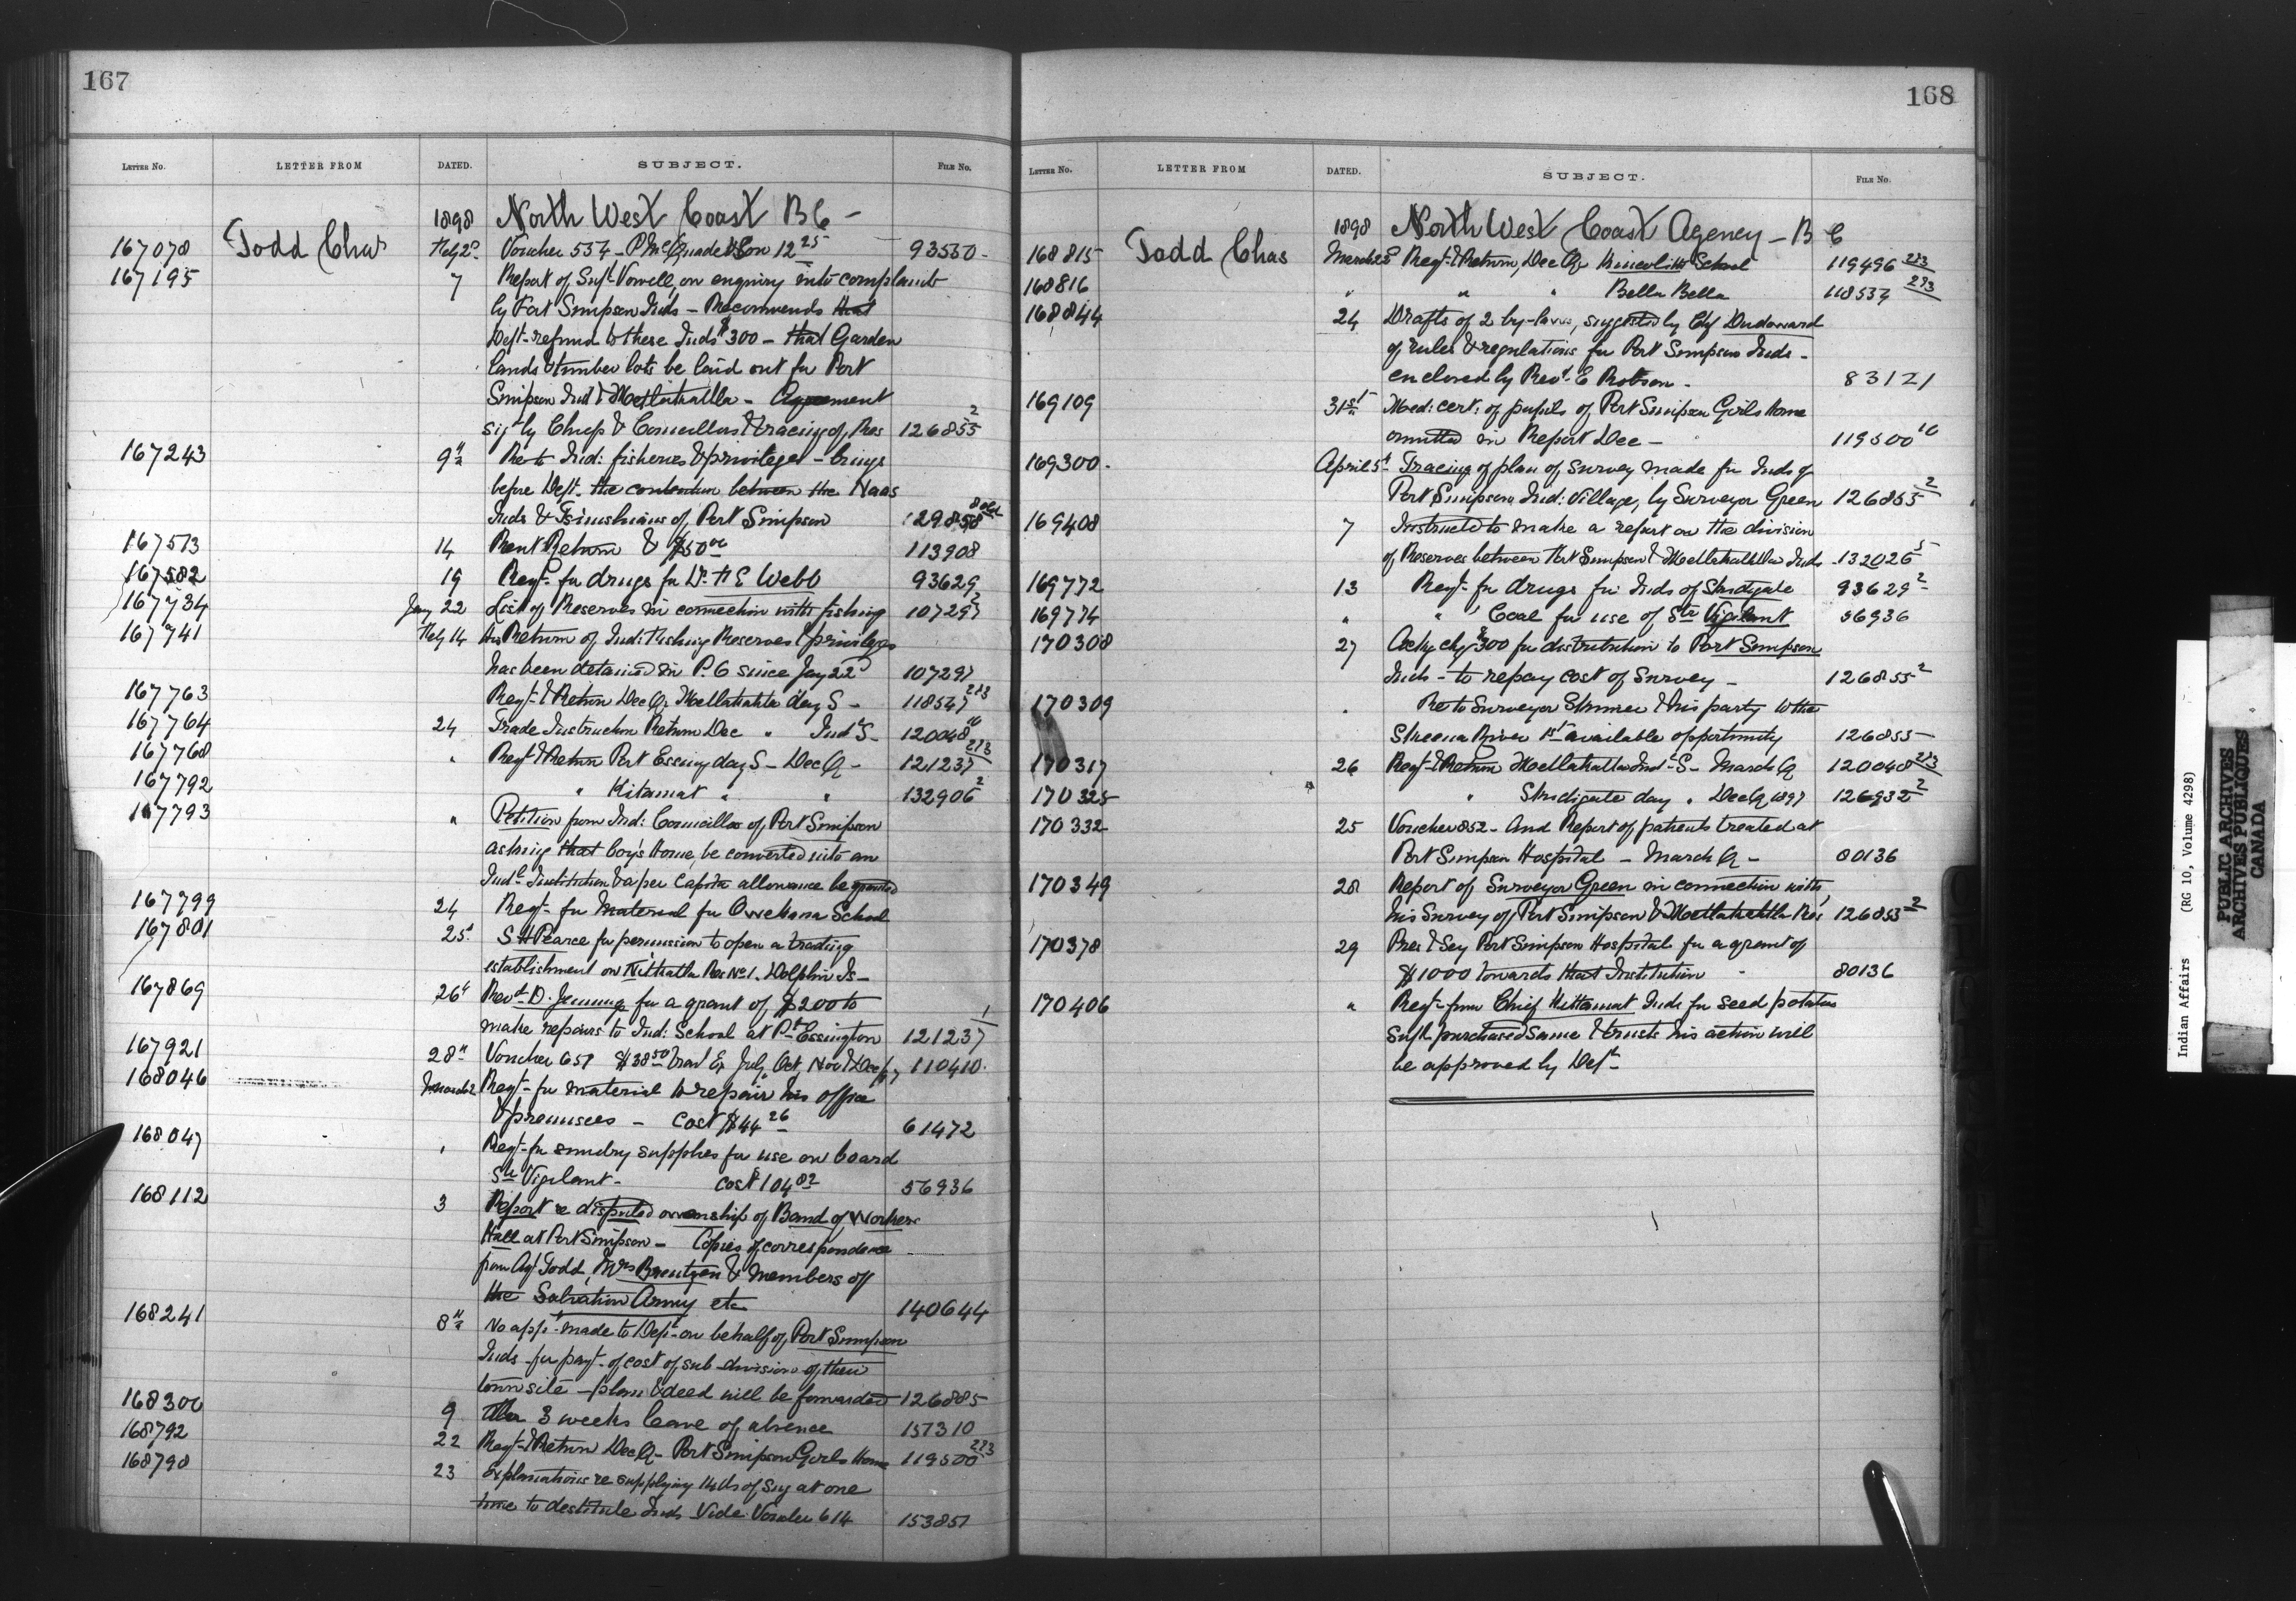 167
LETTER No. LETTER FROM DATED. SUBJECT. FILE No.
1898 North West Coast B C -
167078 Todd Chas Feby 2d Voucher 554 - P McQuade & Son 12 25 93550 -
167195 7 Report of Supt Vowell, on enquiry into complaints
by Port Simpson Inds - Recommends that
Dept. refund to these Inds $300 - that Garden
lands & timber lots be laid out for Port
Simpson Ind & Metlakahtla - Agreement
sigd by Chiefs & Councillors & tracing of Res 126855 2
167243 9th Re to Ind: fisheries & privileges - brings
before Dept. the contention between the Naas
Inds & Tsimshians of Port Simpson 129858
167513 14 Rent Return & $50 00 113908
167582 19 Reqt. for drugs for Dr. H E Webb 93629
167734 Jany 22 List of Reserves in connection with fishing 107297 2
167741 Feby 14 His Return of Ind: Fishing Reserves & privileges
has been detained in P.O since Jany 22d 107297
167763 Reqt. & Return Dec Qr Metlakahtla day S - 118547 2&3
167764 24 Trade Instruction Return Dec " Indl S - 120048 16
167768 " Reqt & Return Port Essing day S - Dec Q - 121237 2&3
167792 " Kitamat " " 132906 2
167793 " Petition from Ind: Councillors of Port Simpson
asking that boy's Home, be converted into an
Indl. Institution & a per Capita allowance be granted
167799 24 Reqt. for Material for Owekana School
167801 25th S H Pearce for permission to open a trading
establishment on Kithatla Res No 1. Dolphin Is -
167869 26th Revd D. Jennings for a grant of $200 to
make repairs to Ind: School at Pt Essington 121237 1
167921 28th Voucher 657 $38 50 Trav Ex July, Oct, Nov & Dec/97 110410.
168046 March 2 Reqt. for material to repair his office
& premises - Cost $44 26 61472
168047 " Reqt. for sundry supplies for use on board
Str Vigilant - Cost $104 82 56936
168112 3 Report re disputed ownership of Band of Workers
Hall at Port Simpson - Copies of correspondence
from Agt Todd, Mrs Brentzen & members of
the Salvation Army etc 140644
168241 8th No appn. made to Dept. on behalf of Port Simpson
Inds for payt. of cost of sub-division of their
townsite - plan & deed will be forwarded 126885
168300 9 After 3 weeks leave of absence 157310
168792 22 Reqt. & Return Dec Q - Port Simpson Girls Home 119500 2&3
168798 23 Explanations re supplying 14 lbs of sug at one
time to destitute Inds Vide Voucher 614 153857
168
LETTER No. LETTER FROM DATED. SUBJECT. FILE No.
1898 North West Coast Agency - B C
168815 Todd Chas March 22 Reqt. & Return, Dec Qr Kincolith School 119496 2&3
168816 " " " Bella Bella 118537 2&3
168844 24 Drafts of 2 by-laws, suggested by Chf Dudoward
of rules & regulations for Port Simpson Inds -
enclosed by Revd. E Robson - 83121
169109 31st Med: cert: of pupils of Port Simpson Girls Home
omitted in Report Dec - 119500 10
169300. April 5th Tracing of plan of survey made for Inds of
Port Simpson Ind: Village, by Surveyor Green 126855 2
169408 7 Instructed to make a report on the division
of Reserves between Port Simpson & Metlakahtla Inds 132026 5
169772 13 Reqt. for drugs for Inds of Skidgate 93629 2
169774 " " Coal for use of Str Vigilant 56936
170308 27 Ackg chq $300 for distribution to Port Simpson
Inds - to repay cost of survey - 126855 2
170309 " Re to Surveyor Skinner & his party to the
Skeena River 1st available opportunity 126855 -
170317 26 Reqt. & Return Metlakahtla Indl. S - March Q 120048 2&3
170325 " Skidigate day " Dec Q 1897 126932 2
170332 25 Voucher 852 - And Report of patients treated at
Port Simpson Hospital - March Q - 80136
170349 28 Report of Surveyor Green in connection with
his Survey of Port Simpson & Metlakahtla Res 126855 2
170378 29 Pres & Secy Port Simpson Hospital for a grant of
$1000 towards that Institution 80136
170406 " Reqt. from Chief Kittamat Inds for seed potatoes
Supt. purchased same & trusts his action will
be approved by Dept -
Indian Affairs (RG 10, Volume 4298)
PUBLIC ARCHIVES
ARCHIVES PUBLIQUES
CANADA